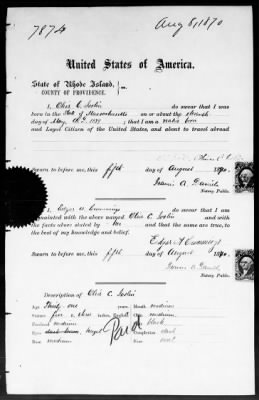 7874
Aug 8, 1870
United States of America.
State of Rhode Island,
COUNTY OF PROVIDENCE.
I Otis C. do swear that I was
born in the State of Massachusetts on or about the eleventh
day of May A.D. 1839 ; that I am a native born
and Loyal Citizen of the United States, and about to travel abroad
Sworn to before me, this fifth day of August 1870.
Francis A. Daniels
Notary Public.
I Edgar A. Cummings do swear that I am
acquainted with the above named Otis C. and with
the facts above stated by him and that the same are true, to
the best of my knowledge and belief.
Edgar A. Cummings
Sworn to before me, this fifth day of August 1870.
Francis A. Daniels
Notary Public.
Description of Otis C.
Age Thirty one years Mouth medium
Stature five Chin medium
Forehead medium Hair black
Eyes hazel Complexion dark
Nose medium Face oval
Paid